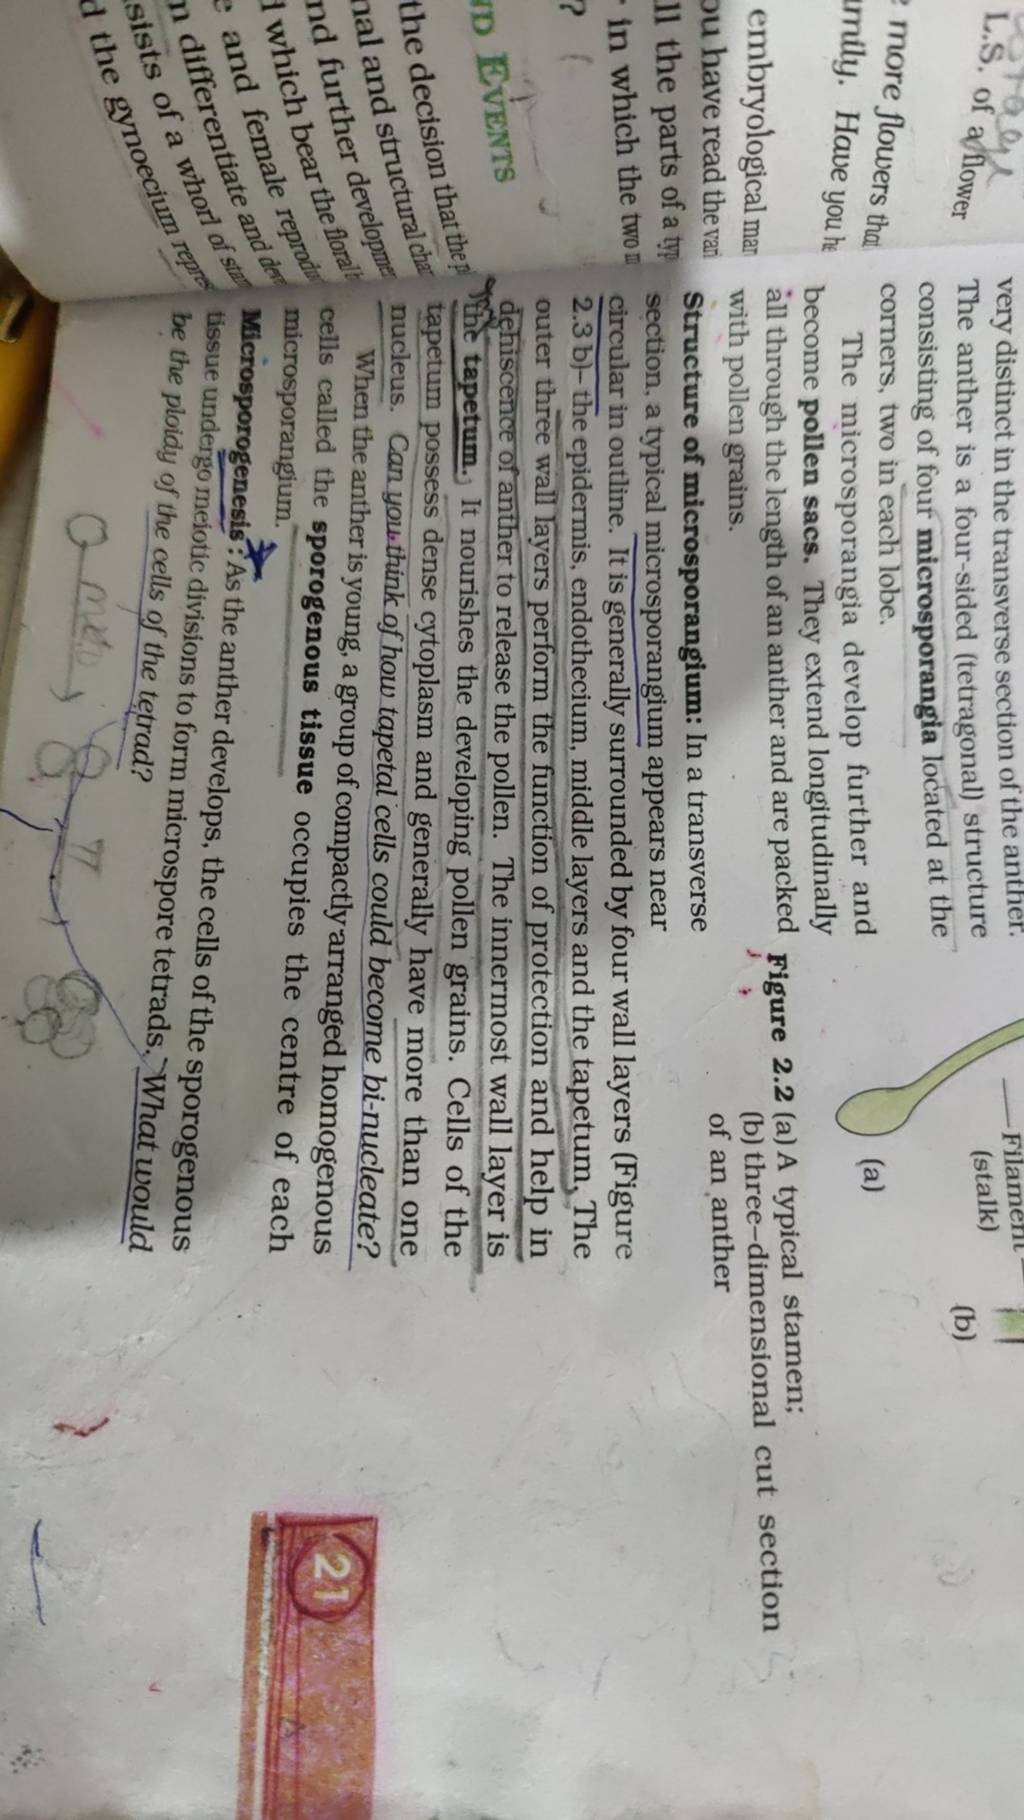 L.S. of a flower
e more flowers that
amily. Have you
embryological
ou have read the
ll the parts of a
in which the two
?
ND EVENTS
the decision that the
nal and structural
nd further
d which bear the floral
e and female
n differentiate and
sists of a whorl of
d the gynoecium
very distinct in the transverse section of the anther.
The anther is a four-sided (tetragonal) structure
consisting of four microsporangia located at the
corners, two in each lobe.
The microsporangia develop further and
become pollen sacs. They extend longitudinally
all through the length of an anther and are packed
with pollen grains.
Filament
(stalk)
(b)
(a)
Figure 2.2 (a) A typical stamen;
(b) three–dimensional cut section
of an anther
Structure of microsporangium: In a transverse
section, a typical microsporangium appears near
circular in outline. It is generally surrounded by four wall layers (Figure
2.3 b)– the epidermis, endothecium, middle layers and the tapetum. The
outer three wall layers perform the function of protection and help in
dehiscence of anther to release the pollen. The innermost wall layer is
the tapetum. It nourishes the developing pollen grains. Cells of the
tapetum possess dense cytoplasm and generally have more than one
nucleus. Can you think of how tapetal cells could become bi-nucleate?
When the anther is young, a group of compactly arranged homogenous
cells called the sporogenous tissue occupies the centre of each
microsporangium.
Microsporogenesis : As the anther develops, the cells of the sporogenous
tissue undergo meiotic divisions to form microspore tetrads. What would
be the ploidy of the cells of the tetrad?
21